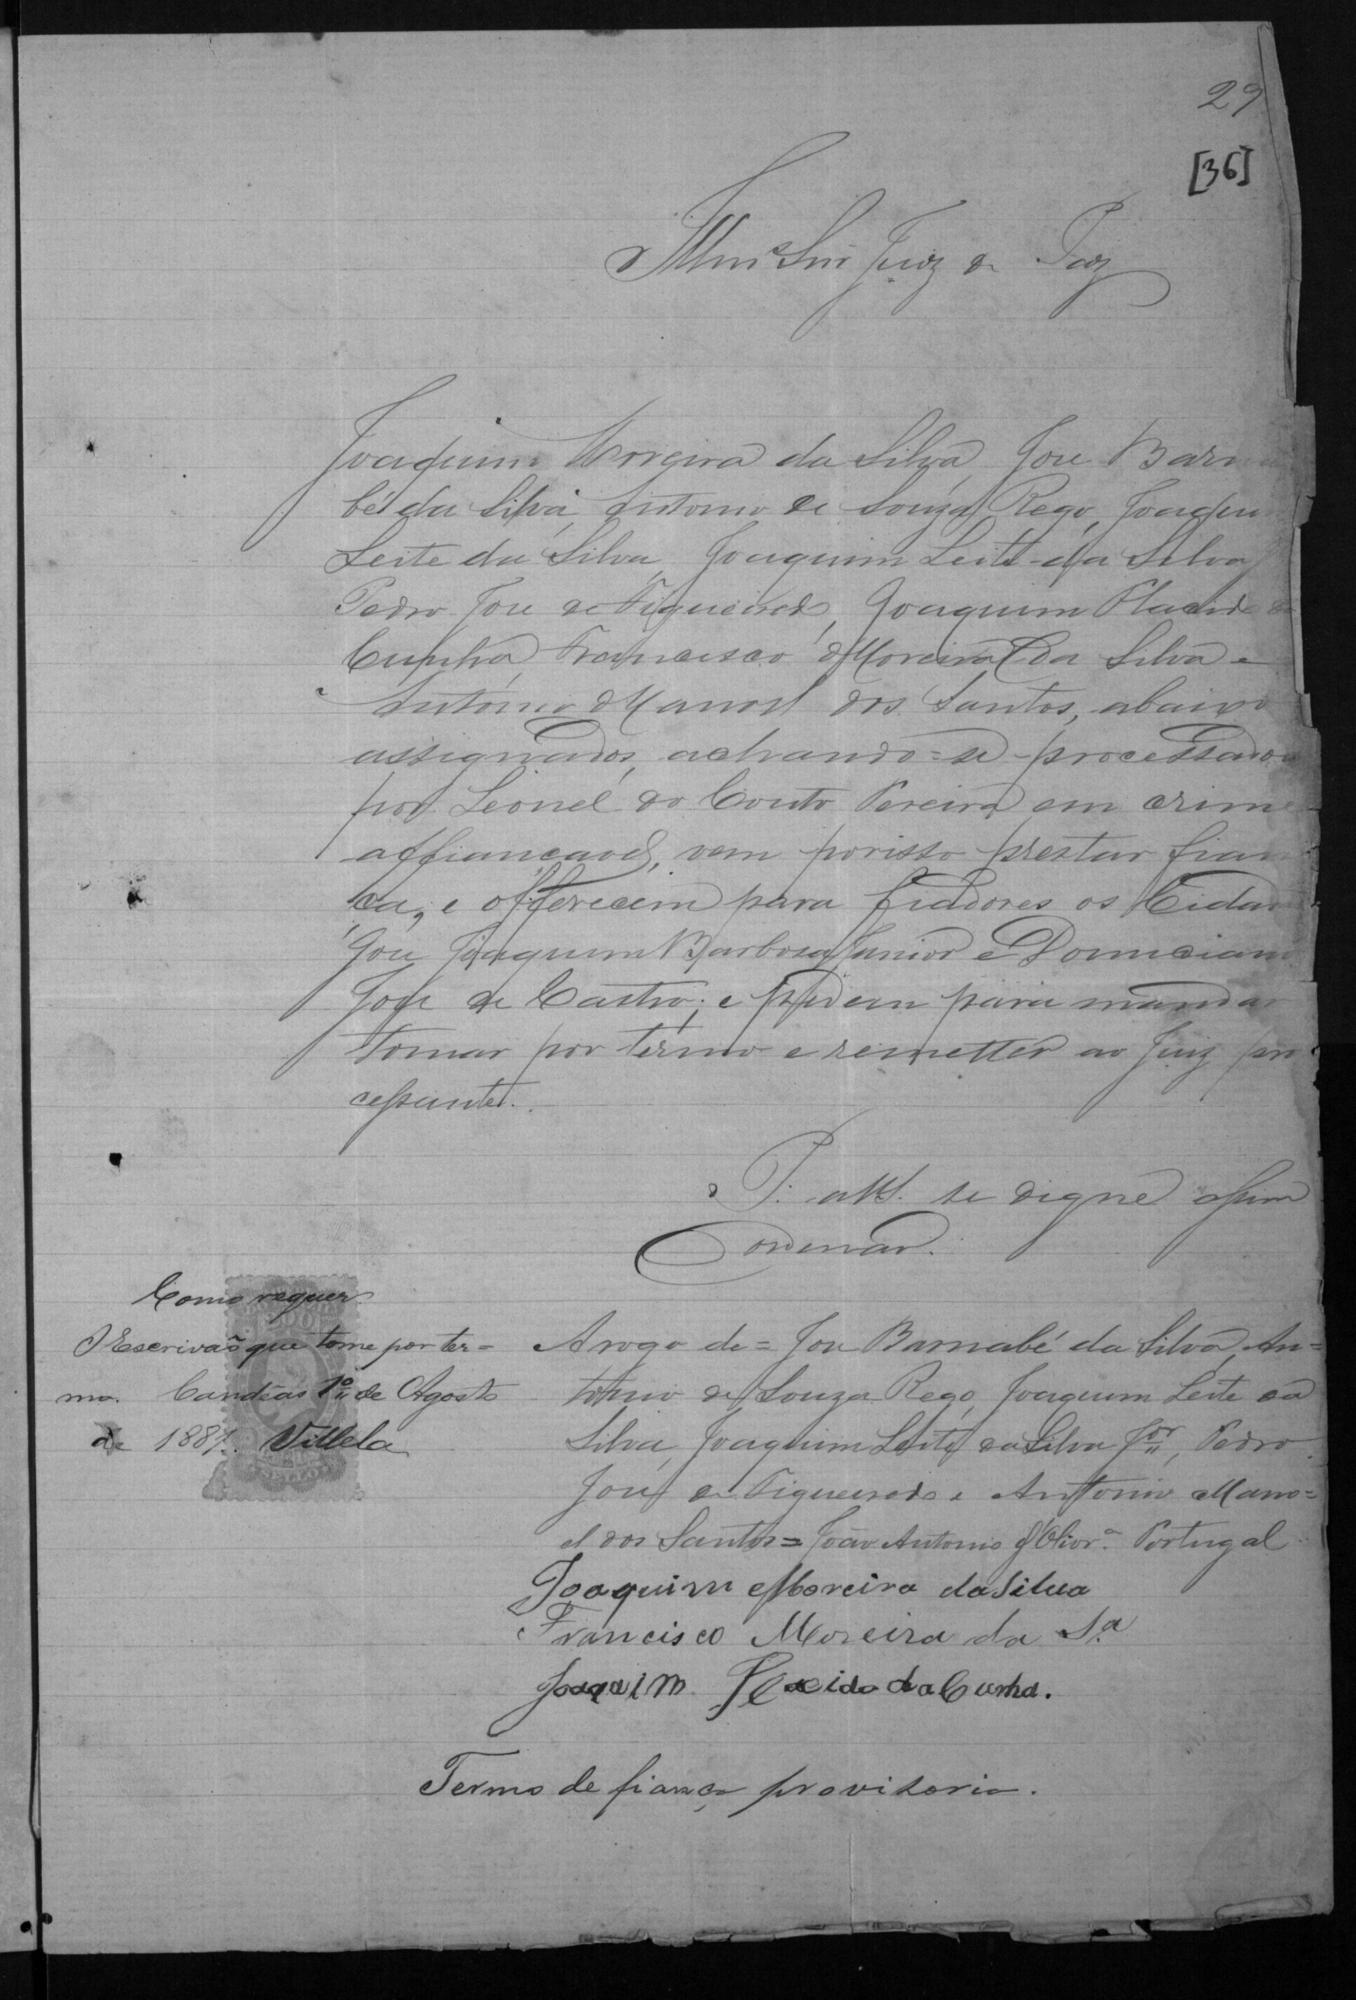 29
[36]
Illmº Snr Juiz de Paz
Joaquim Moreira da Silva, José Barna
bé da Silva, Antonio de Souza Rego, Joaquim
Leite da Silva, Joaquim Leite da Silva
Pedro José de Figueiredo, Joaquim Placido da
Cunha, Francisco Moreira da Silva e
Antonio Manoel dos Santos, abaixo
assignados, achando=se processados
por Leonel do Couto Pereira em crime
affiancavel, vem porisso prestar fian
ça, e offerecem para fiadores os Cidadãos
José Joaquim Barbosa Junior e Domiciano
José de Castro; e pedem para mandar
tomar por termo e remetter ao Juiz pro
cessante.
P. a V.S. se digne assim
ordenar.
Como requer.
O Escrivaõ que tome por ter=
mo. Candeas 1º de Agosto
de 1881. Villela
SELLO
A rogo de= José Barnabé da Silva, An=
tonio de Souza Rego, Joaquim Leite da
Silva, Joaquim Leite da Silva Jor, Pedro
José de Figueiredo e Antonio Mano=
el dos Santos= João Antonio d'Olivrª Portugal
Joaquim Moreira da Silva
Francisco Moreira da Sª
Joaqim Placido da Cunha.
Termo de fiança provisoria.